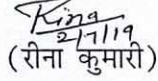 Rina
2/7/19
(रीना कुमारी)